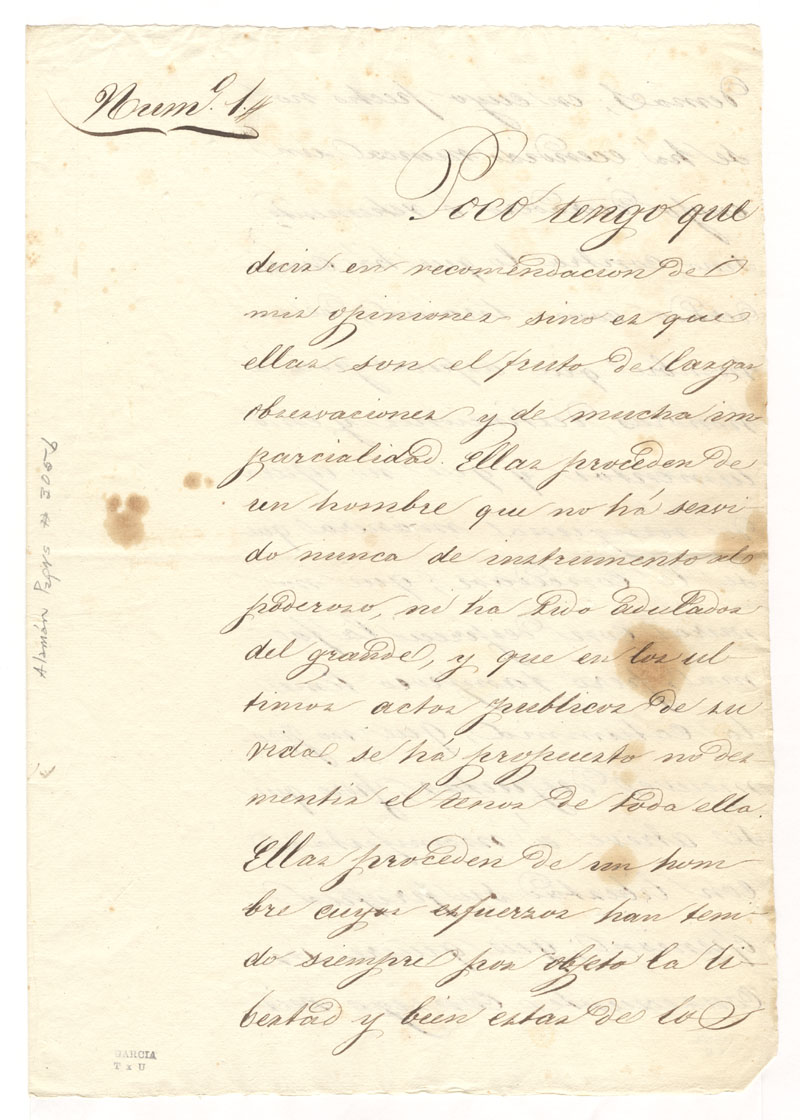 Num.º 1.
Poco tengo que
decir en recomendacion de
mis opiniones sino es que
ellas son el fruto de largas
observaciones y de mucha im-
parcialidad. Ellas proceden de
un hombre que no há servi
do nunca de instrumento al
poderoso, ni ha sido adulador
del grande, y que en los ul-
timos actos publicos de su
vida se há propuesto no des-
mentir el tenor de toda ella.
Ellas proceden de un hom-
bre cuyos esfuerzos han teni-
do siempre por objeto la li-
bertad y bien estar de los
Alamán Paprs # 305b
GARCIA
T x U